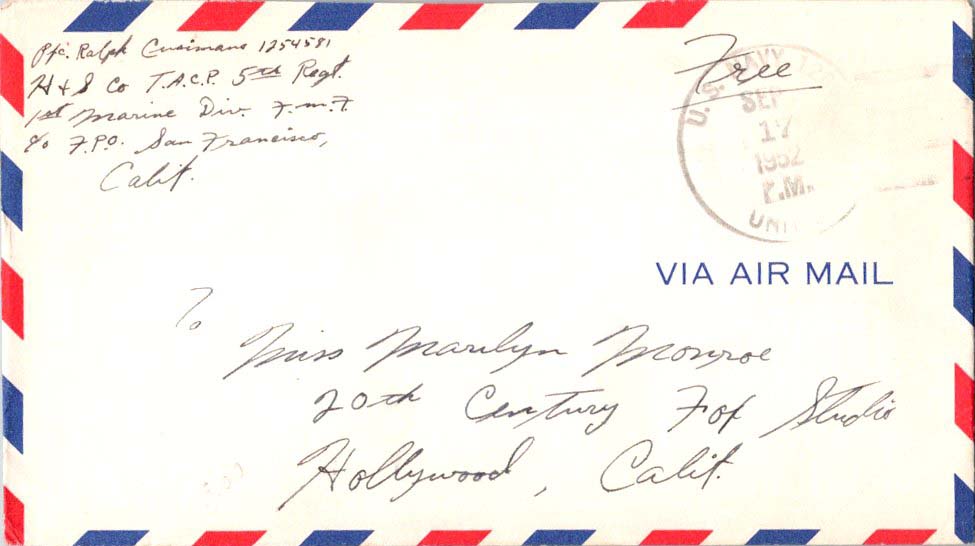 Pfc. Ralph Cusimano 1254581
H & S Co T.A.C.P. 5th Regt.
1st Marine Div. F.M.F
c/o F.P.O. San Francisco,
Calif.
Free
U.S. NAVY
SEP
17
1952
P.M.
VIA AIR MAIL
To
Miss Marilyn Monroe
20th Century Fox Studio
Hollywood, Calif.